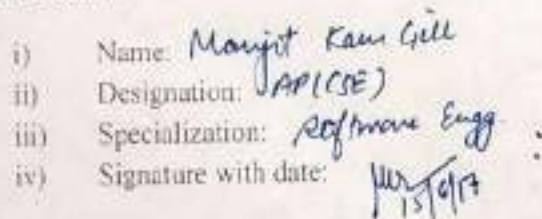 i) Name: Manjit Kaur Gill
ii) Designation: AP(CSE)
iii) Specialization: Software Engg.
iv) Signature with date: 15/6/17